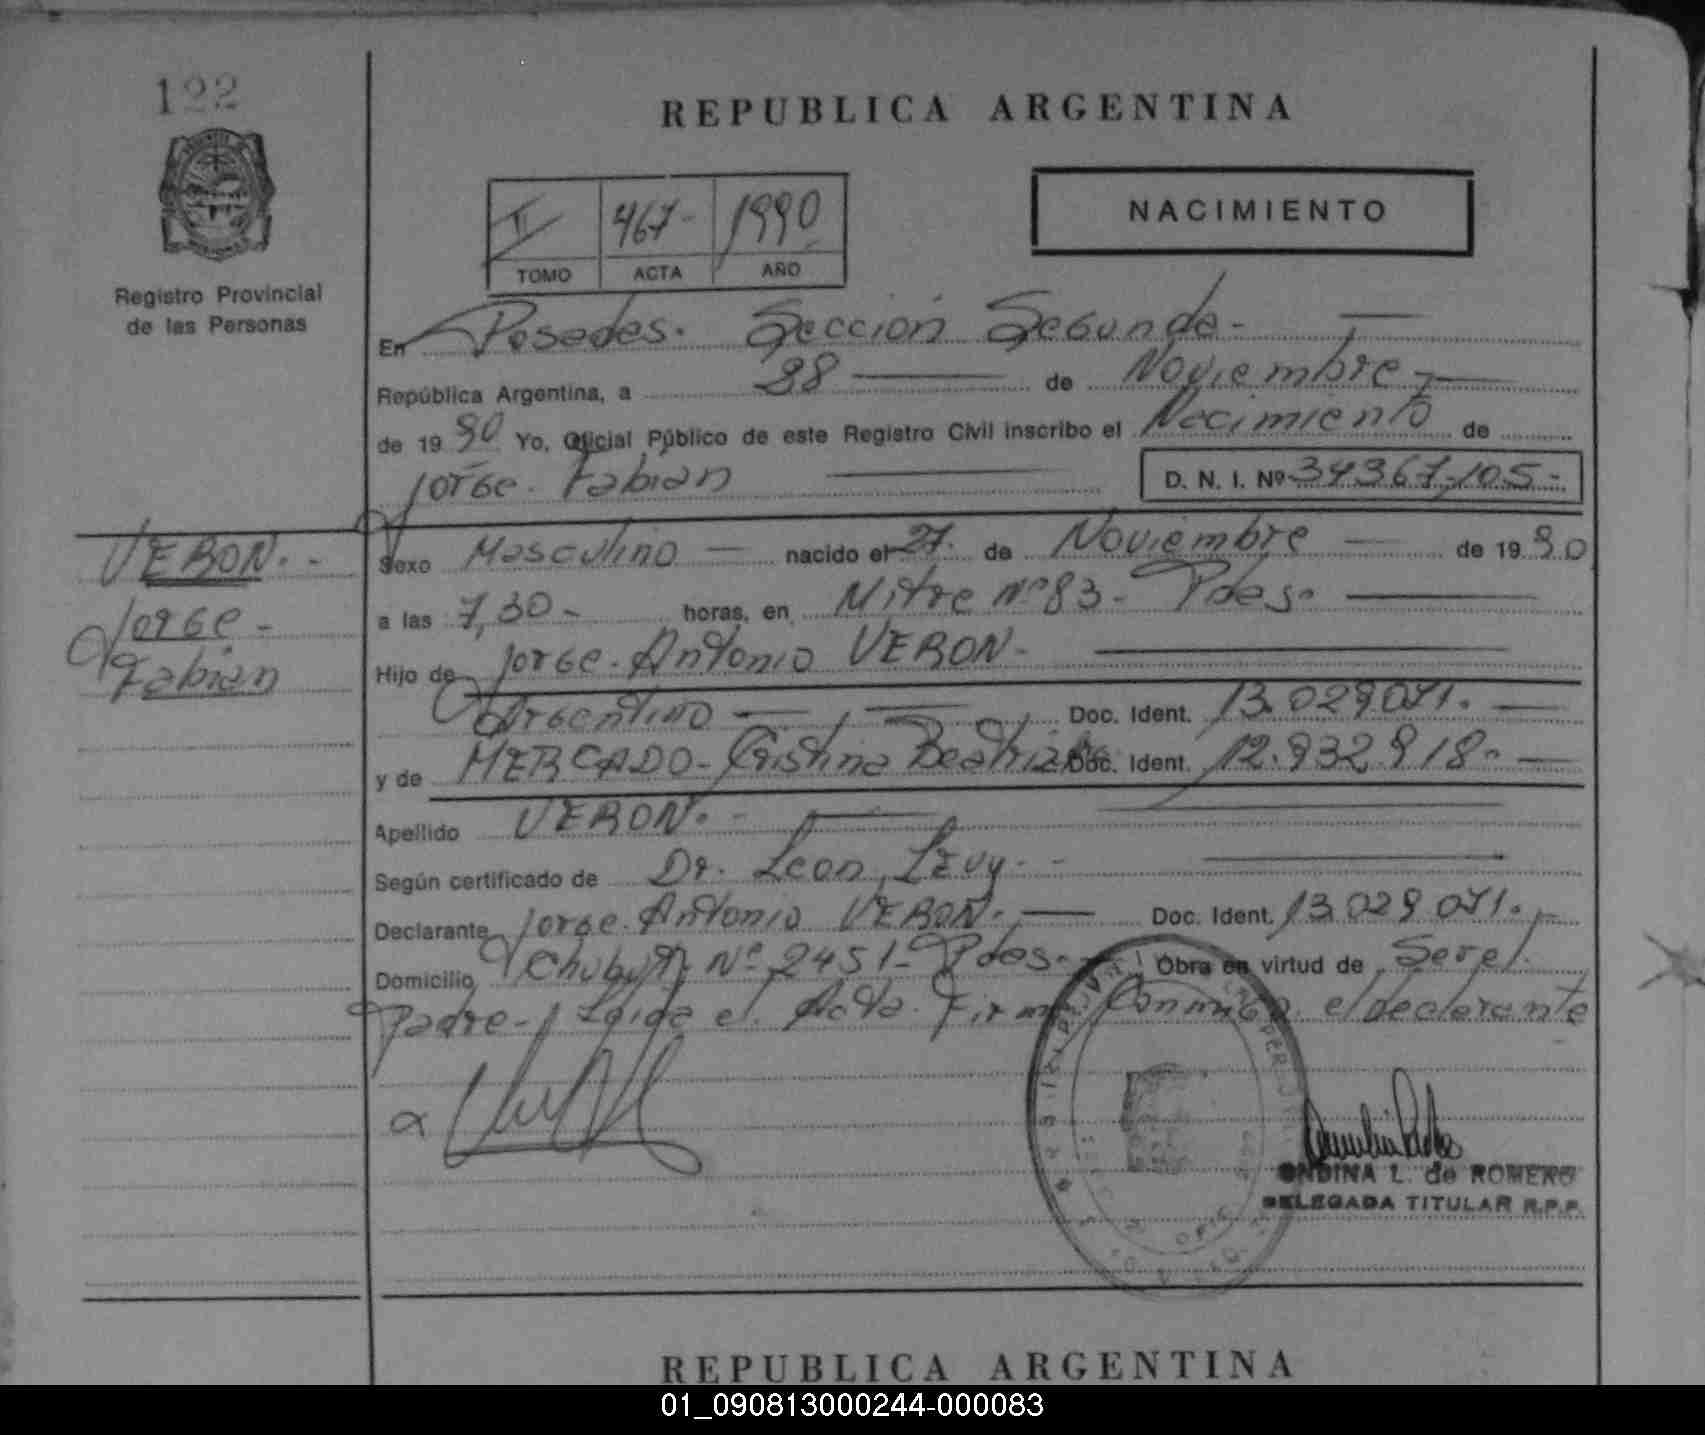 122
REPUBLICA ARGENTINA
II 467- 1990
TOMO ACTA AÑO
NACIMIENTO
Registro Provincial
de las Personas
En Posadas. Sección Segunda-
República Argentina, a 28 de Noviembre-
de 19 90 Yo, Oficial Público de este Registro Civil inscribo el Nacimiento de
Jorge Fabian D. N. I. Nº 34367,105-
VERON.-
Jorge-
Fabian
Sexo Masculino nacido el 27. de Noviembre de 19 90
a las 7,30- horas, en Mitre Nº 83- Pdas.
Hijo de Jorge Antonio VERON-
Argentino Doc. Ident. 13.029.071.
y de MERCADO- Cristina Beatriz Doc. Ident. 12.932.918-
Apellido VERON.-
Según certificado de Dr. Leon Levy.-
Declarante Jorge Antonio VERON- Doc. Ident. 13.029.071.
Domicilio Chubut Nº 2451- Pdas.- Obra en virtud de Ser el
Padre- Leida el Acta. Firma Conmigo el declarante
ONDINA L. de ROMERO
DELEGADA TITULAR R.P.P.
REPUBLICA ARGENTINA
01_090813000244-000083